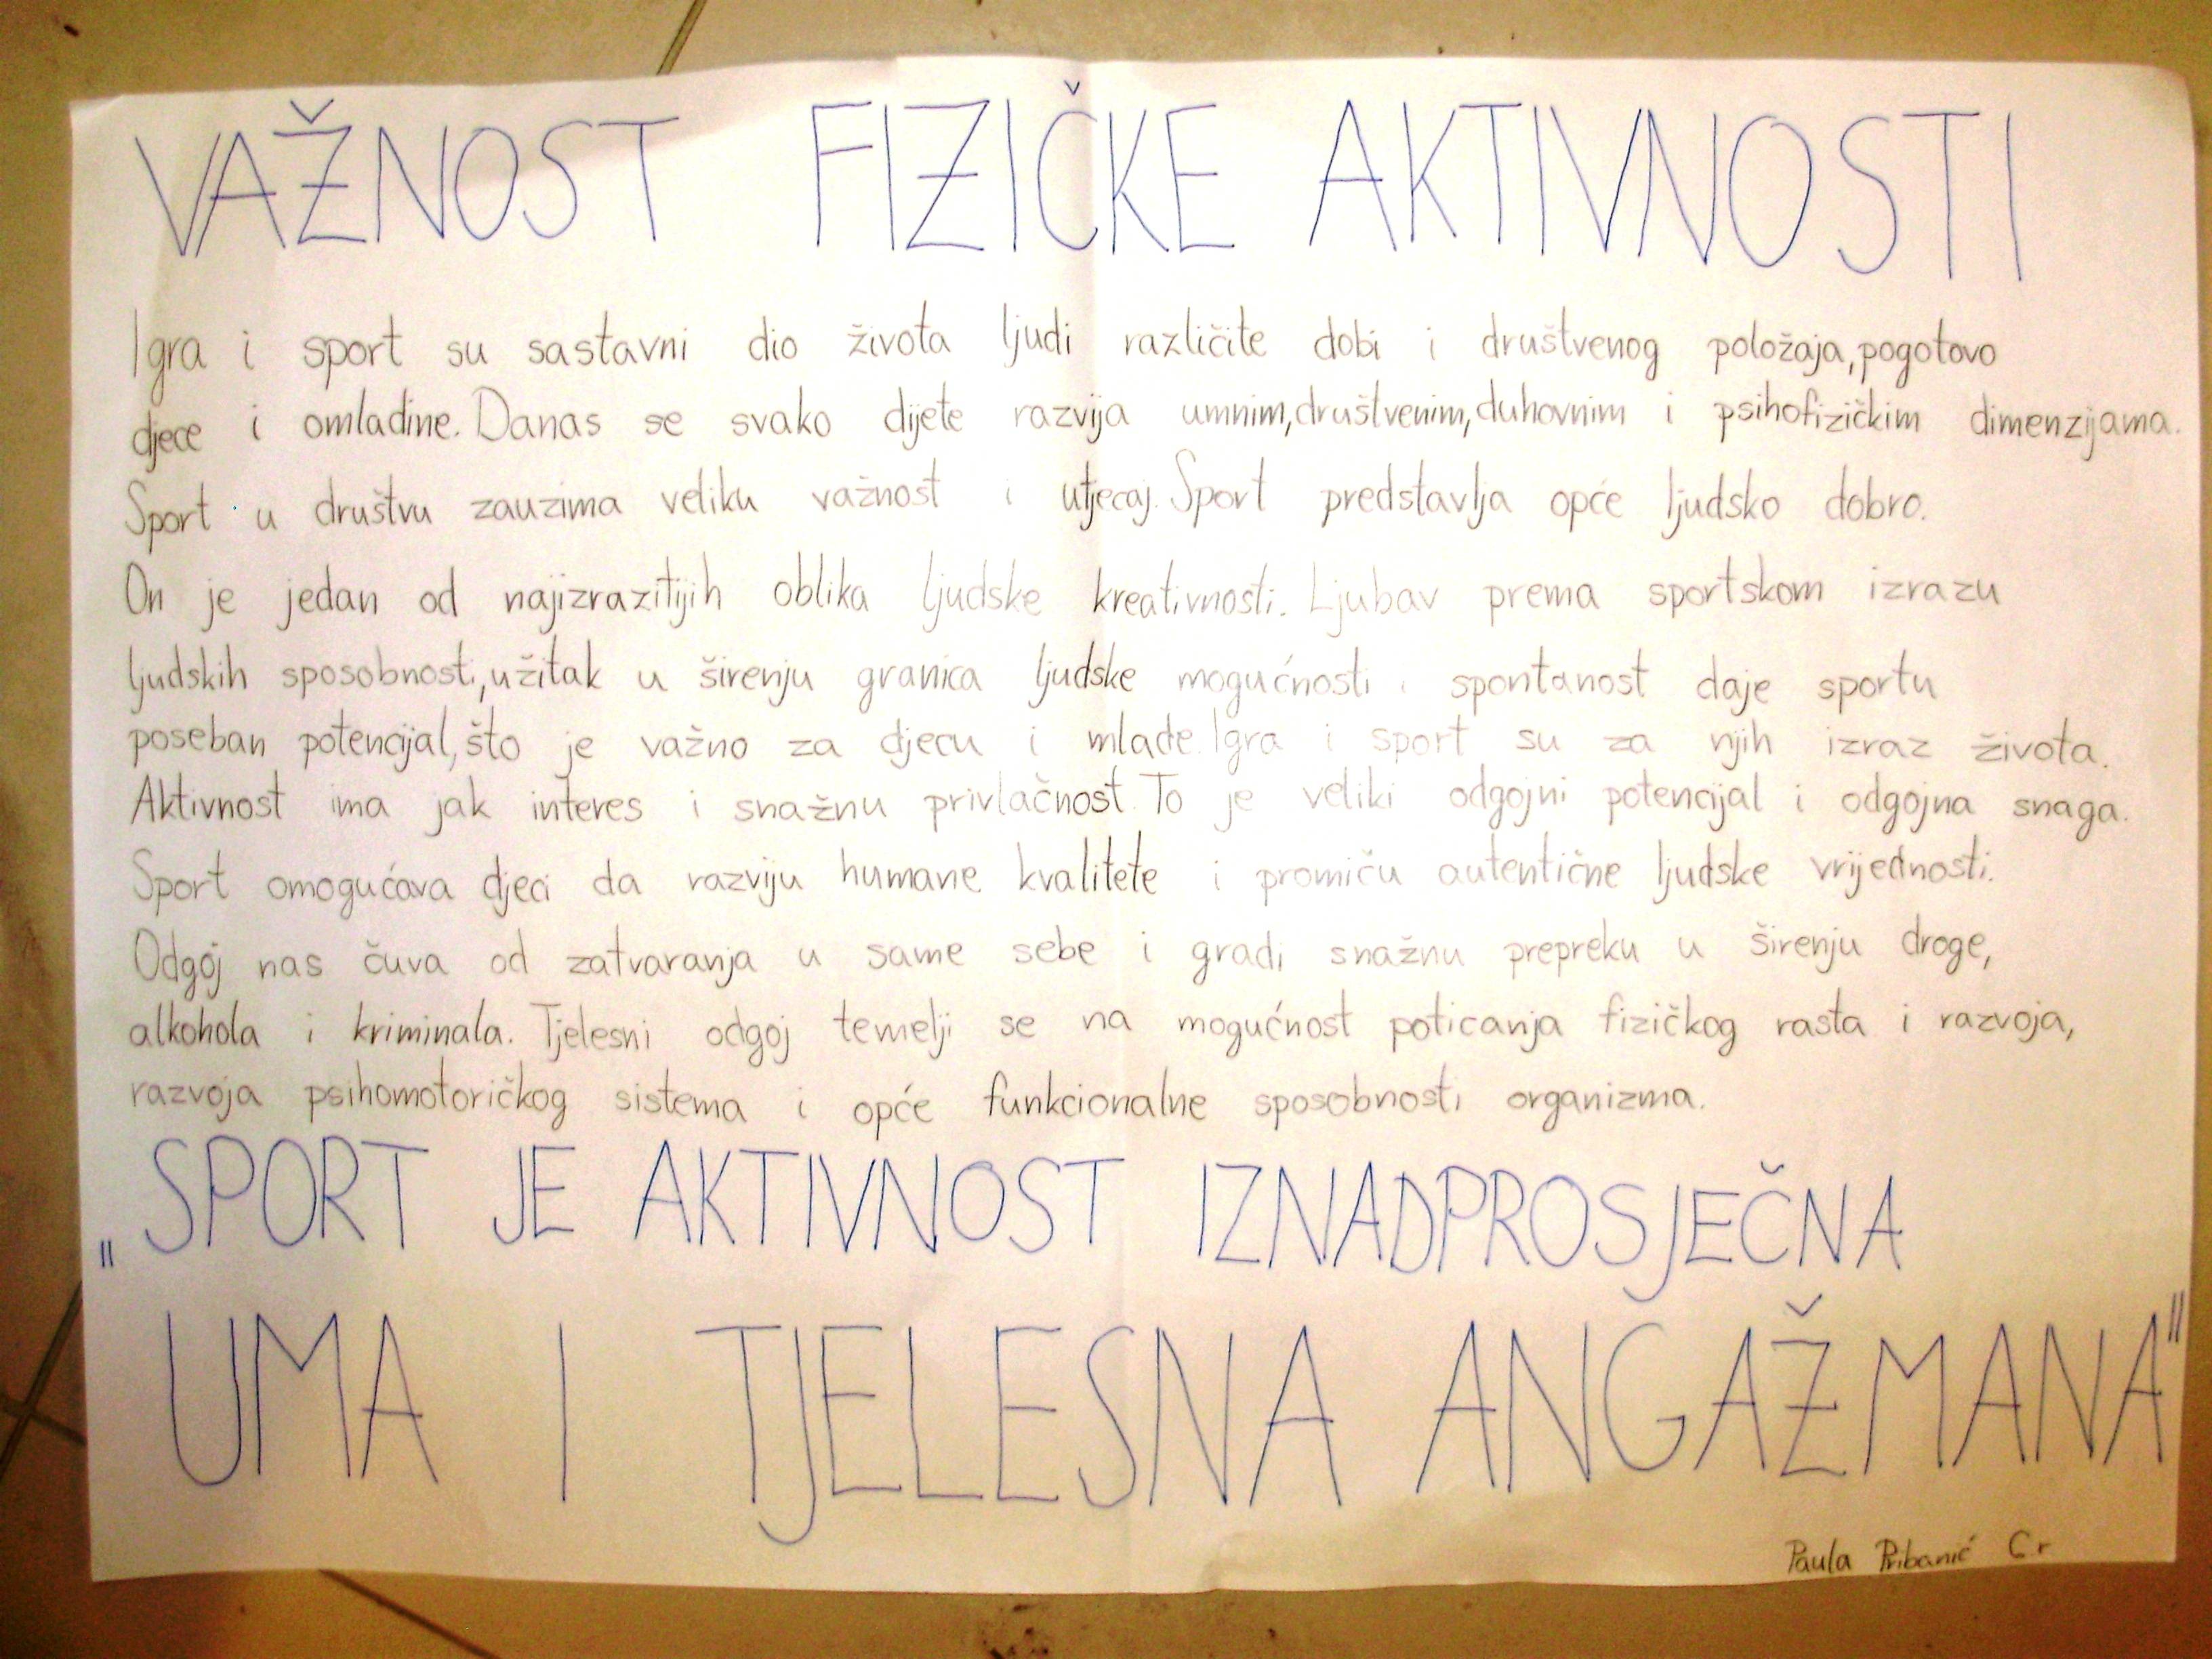 VAŽNOST FIZIČKE AKTIVNOSTI
Igra i sport su sastavni dio života ljudi različite dobi i društvenog položaja, pogotovo
djece i omladine. Danas se svako dijete razvija umnim, društvenim, duhovnim i psihofizičkim dimenzijama.
Sport u društvu zauzima veliku važnost i utjecaj. Sport predstavlja opće ljudsko dobro.
On je jedan od najizrazitijih oblika ljudske kreativnosti. Ljubav prema sportskom izrazu
ljudskih sposobnosti, užitak u širenju granica ljudske mogućnosti i spontanost daje sportu
poseban potencijal, što je važno za djecu i mlade. Igra i sport su za njih izraz života.
Aktivnost ima jak interes i snažnu privlačnost. To je veliki odgojni potencijal i odgojna snaga.
Sport omogućava djeci da razviju humane kvalitete i promiču autentične ljudske vrijednosti.
Odgoj nas čuva od zatvaranja u same sebe i gradi snažnu prepreku u širenju droge,
alkohola i kriminala. Tjelesni odgoj temelji se na mogućnost poticanja fizičkog rasta i razvoja,
razvoja psihomotoričkog sistema i opće funkcionalne sposobnosti organizma.
„SPORT JE AKTIVNOST IZNADPROSJEČNA
UMA I TJELESNA ANGAŽMANA"
Paula Pribanić 6.r